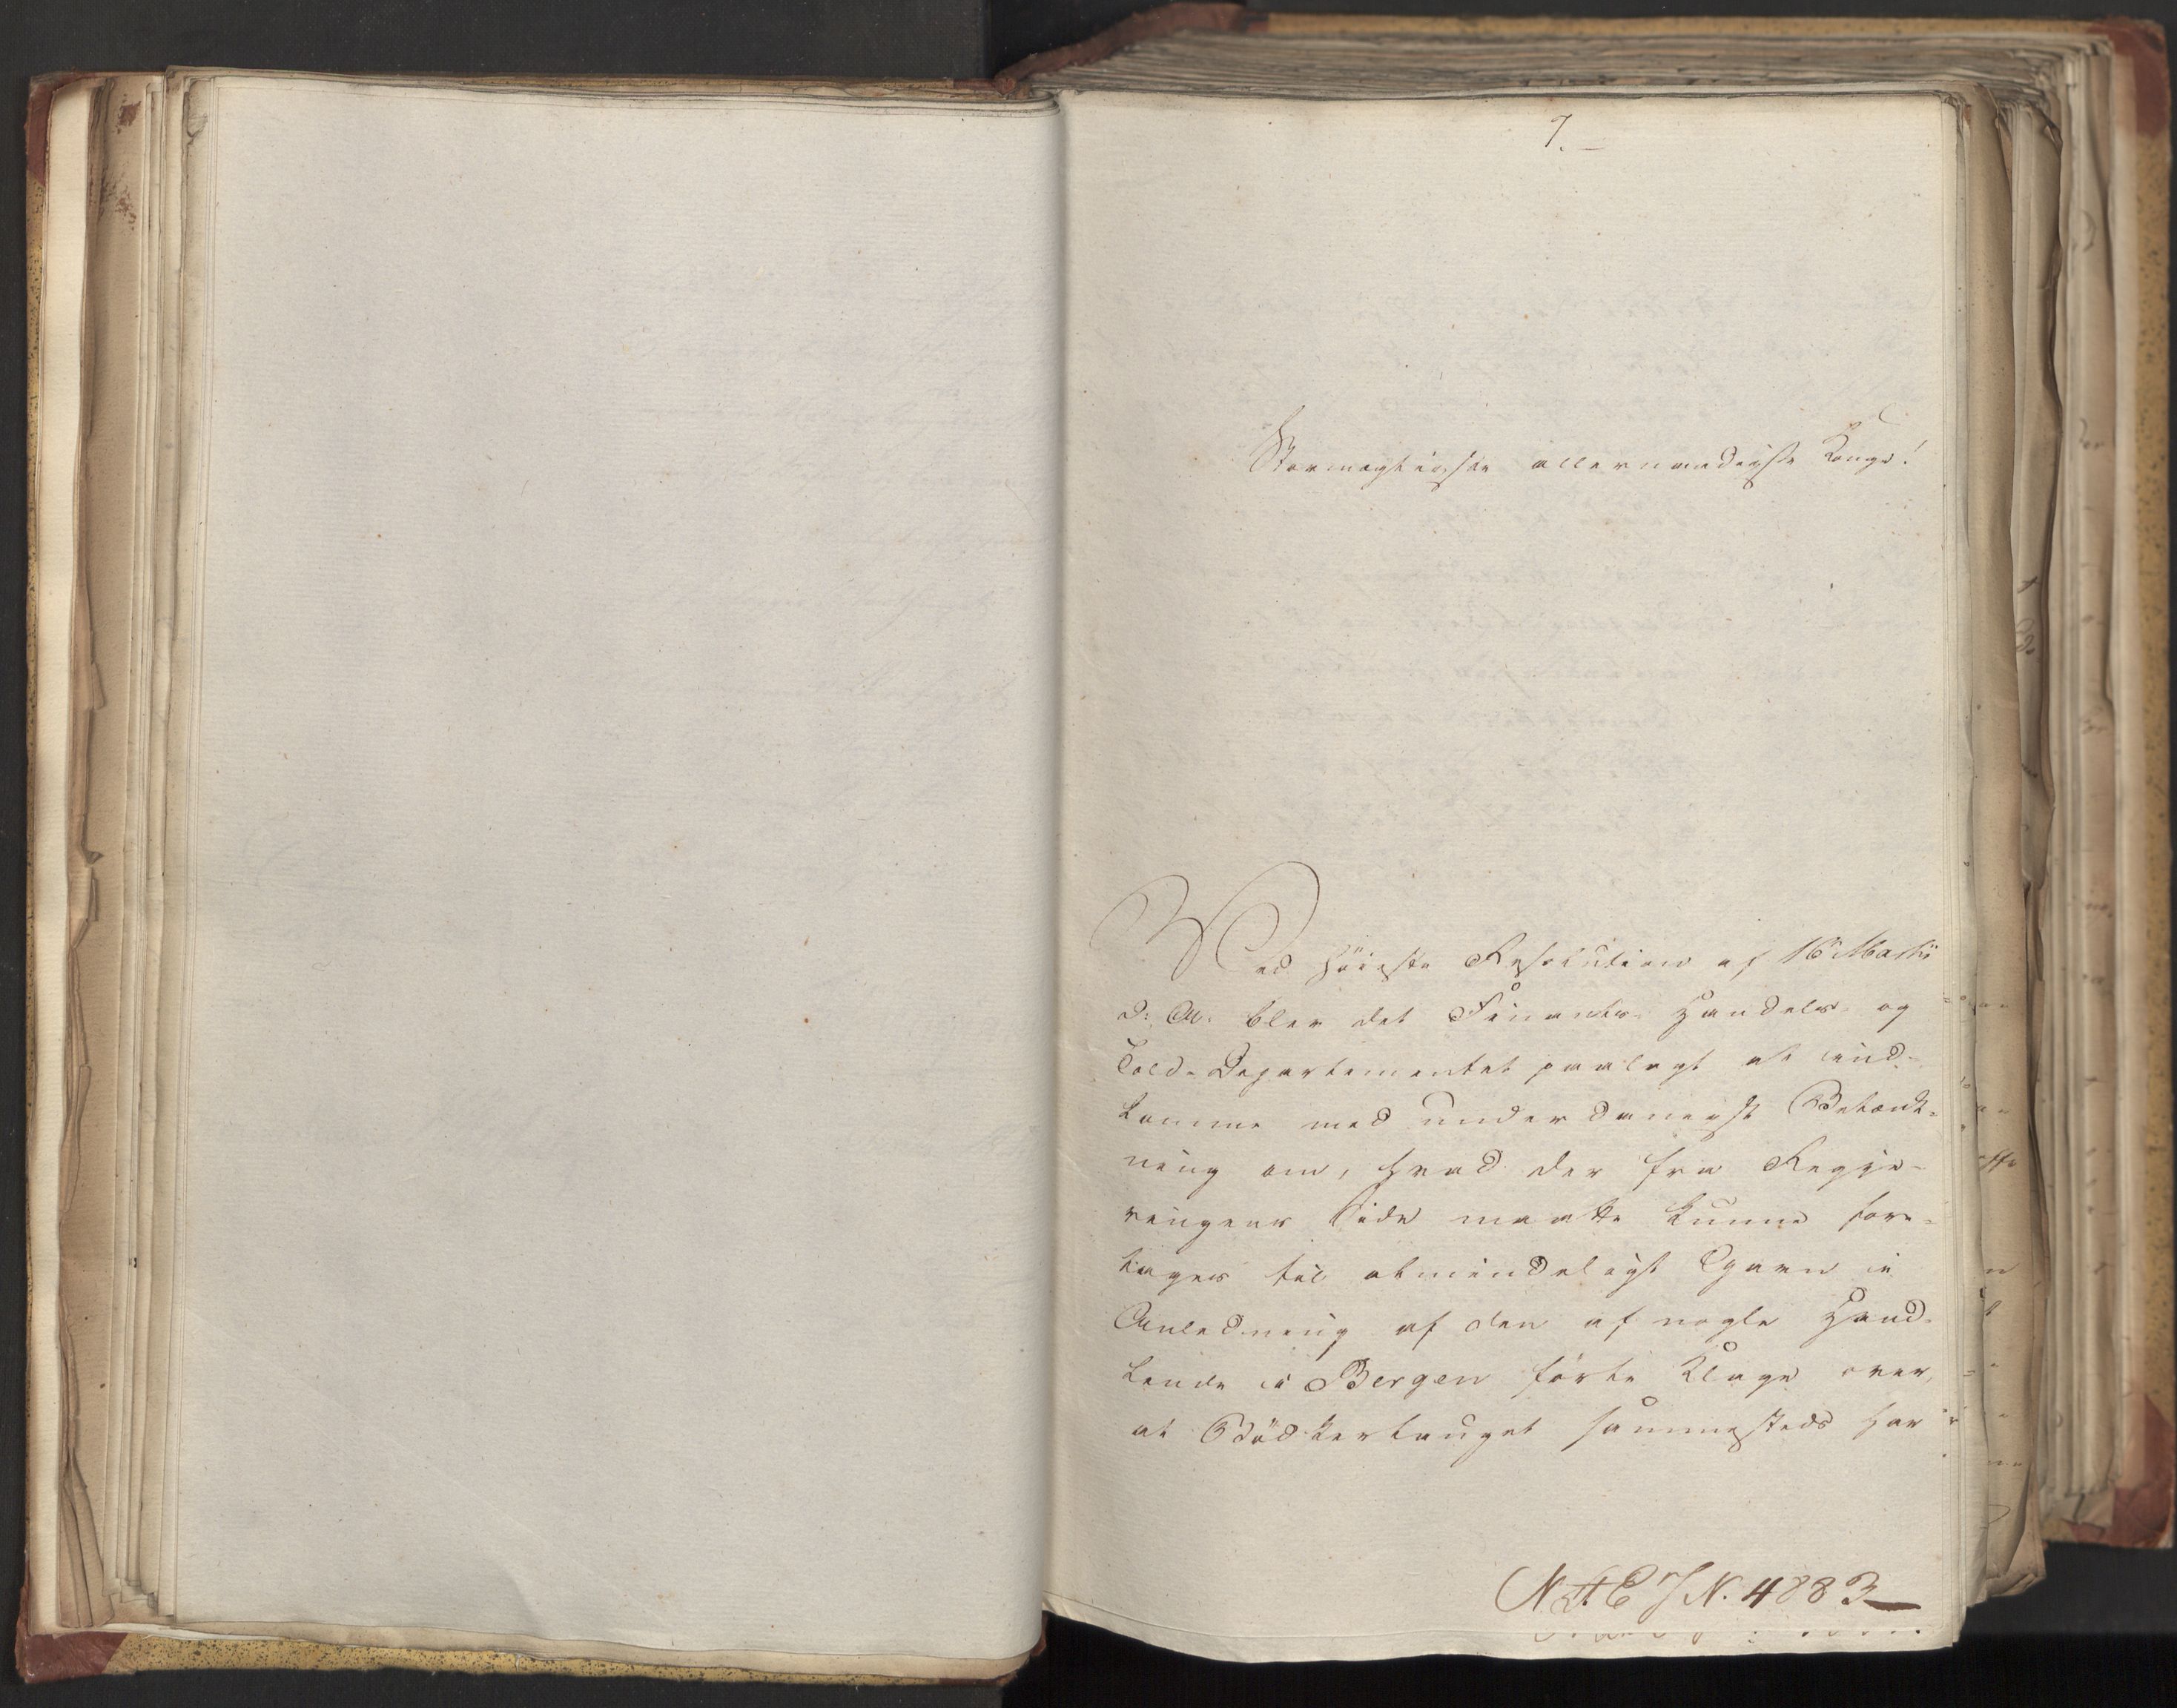 7.
Stormægtigste allernaadigste Konge!
Ved höieste Resolution af 16 Martii
d: A: blev det Finants- Handels- og
Told-Departementet paalagt at ind-
komme med underdanigst Betænk-
ning om, hvad der fra Regje-
ringens Side maatte kunne fore-
tages til almindeligt Gavn i
Anledning af den af nogle Hand-
lende i Bergen förte Klage over,
at Bödkerlauget sammesteds har
N.A.E J N. 4883